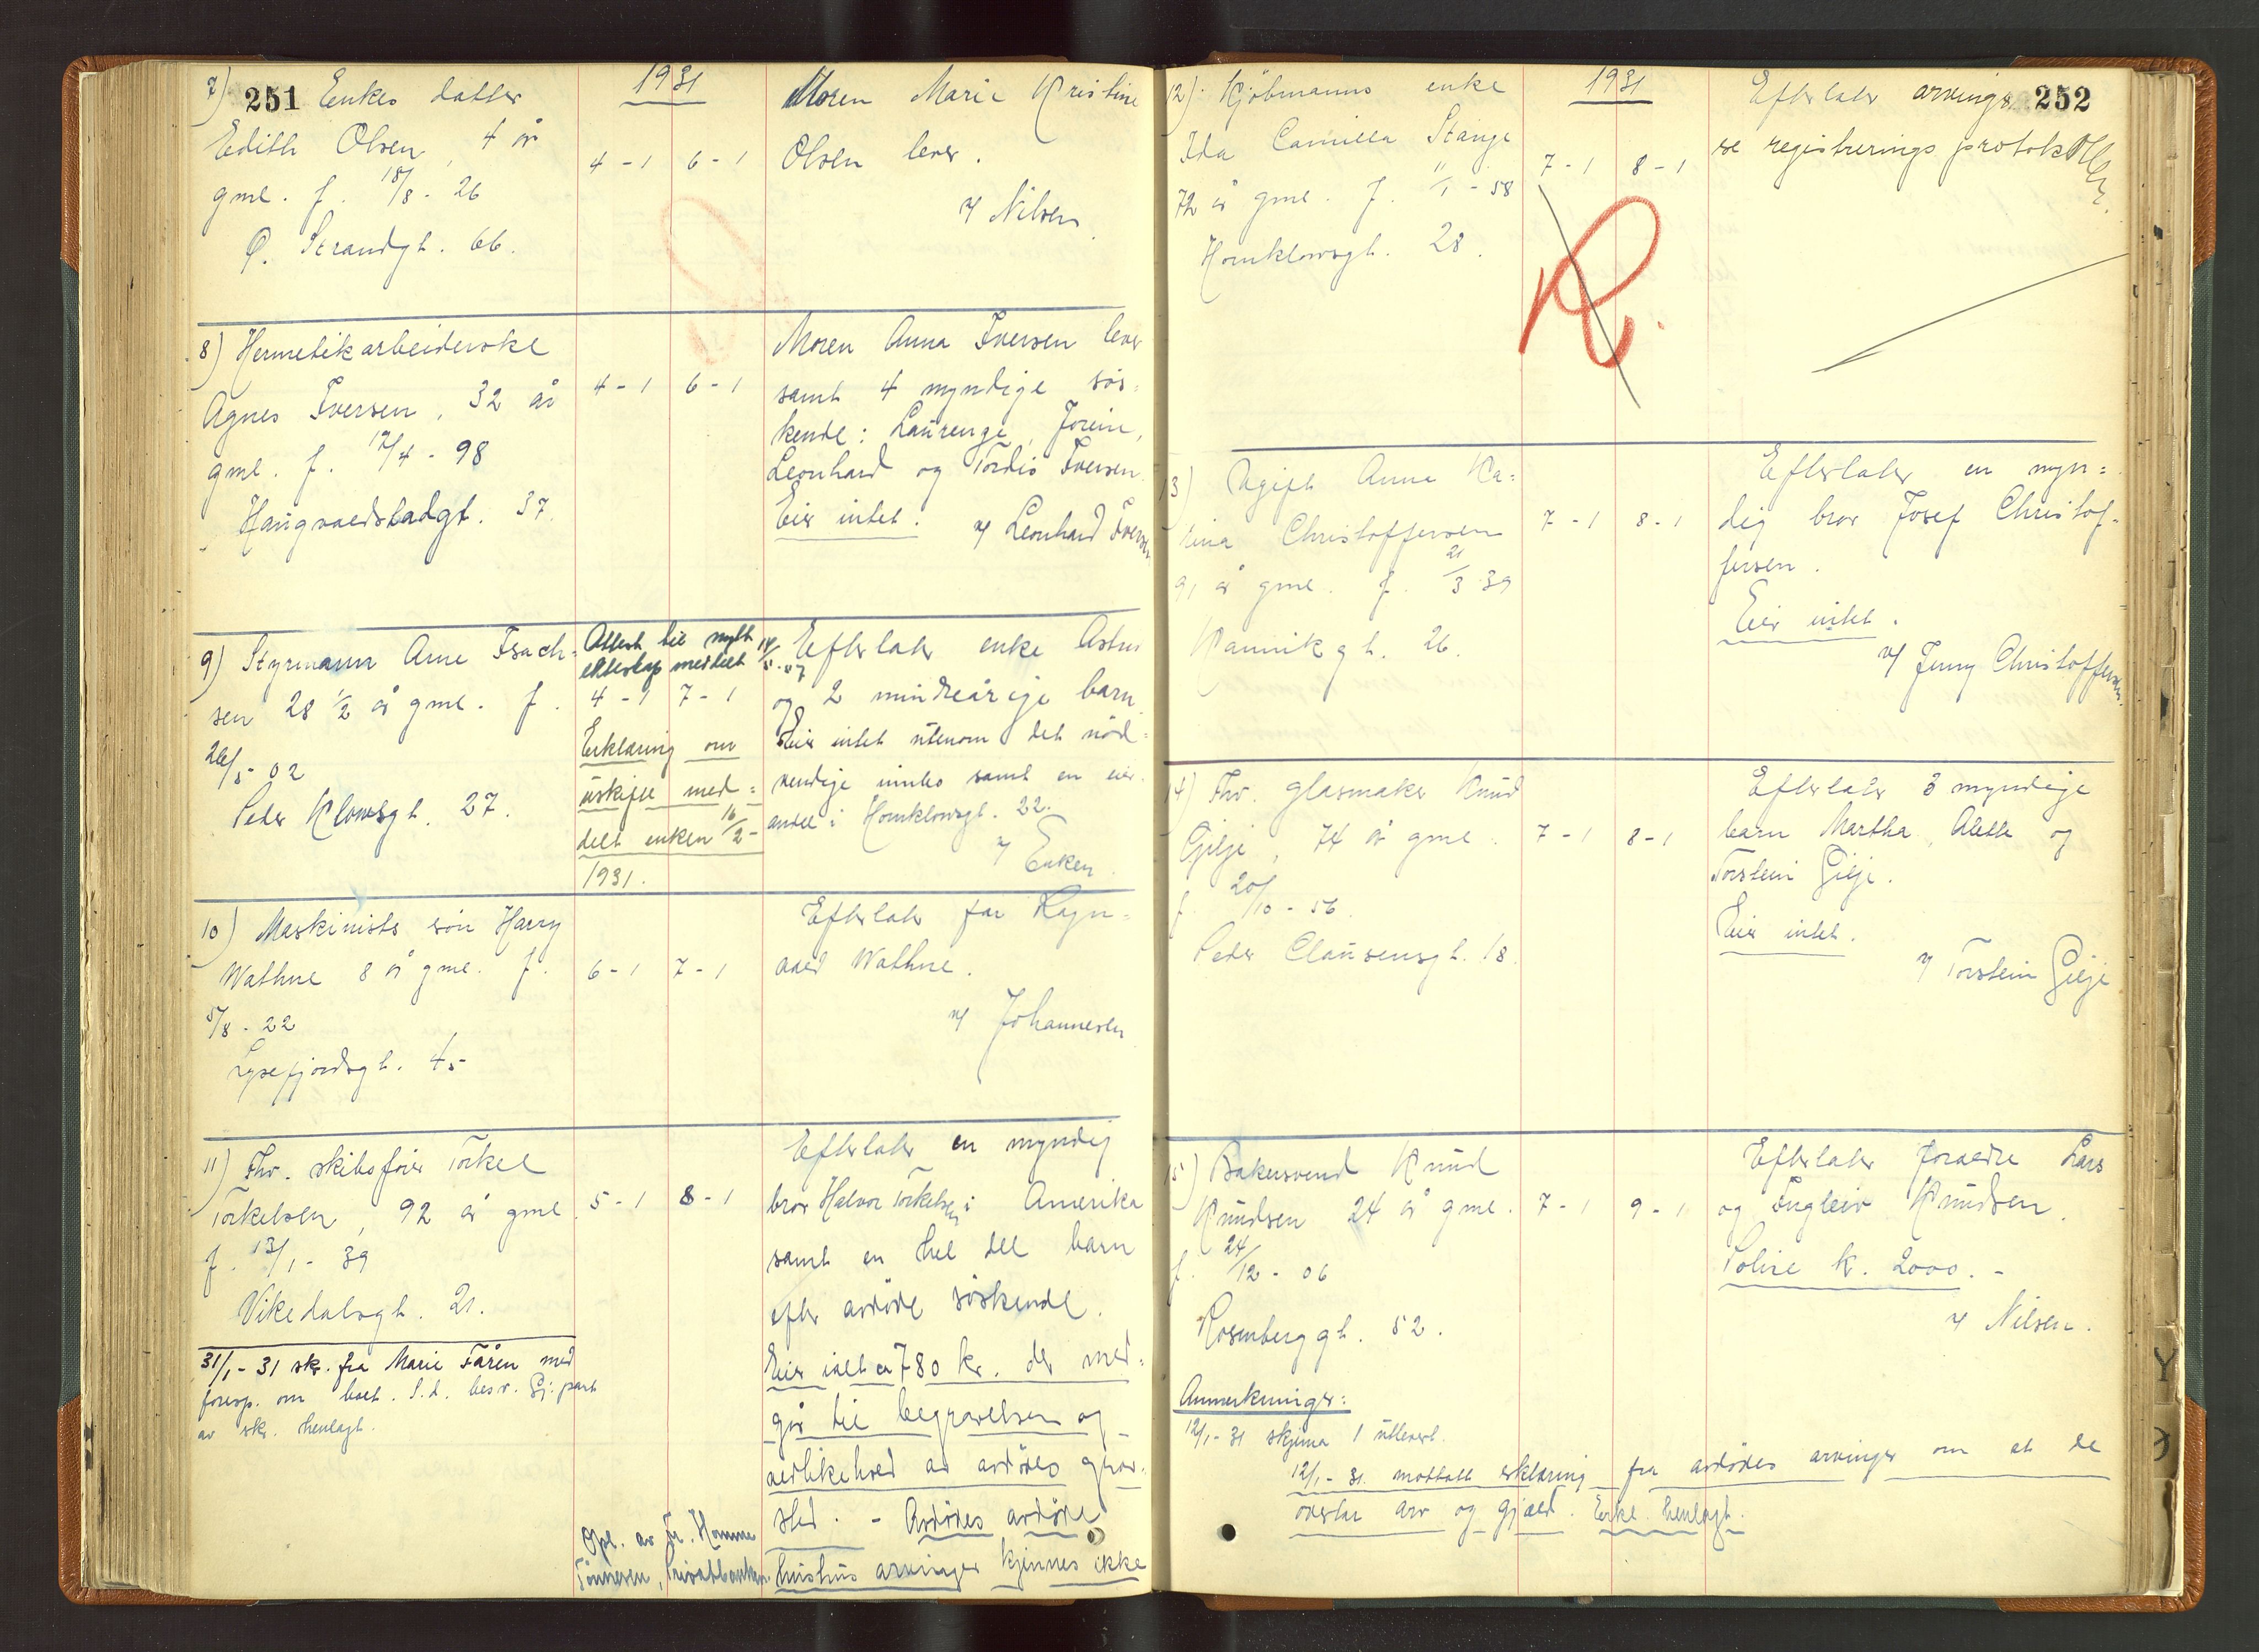 251
7) Enkes datter
Edith Olsen, 4 år
gml. f. 18/8 - 26
Ø. Strandgt. 66.
1931
4 - 1 6 - 1
Moren Marie Kristine
Olsen lever.
v/ Nilsen.
8) Hermetikarbeiderske
Agnes Iversen, 32 år
gml. f. 17/4 - 98
Haugvaldstadgt. 37.
4 - 1 6 - 1
Moren Anna Iversen lever
samt 4 myndige søs-
kende: Laurenze, Jorein,
Leonhard og Tordis Iversen.
Eier intet.
v/ Leonhard Iversen
9) Styrmann Arne Isach-
sen 28 1/2 år gml. f.
26/5 - 02
Peder Klowsgt. 27.
Attest til nytt
ekteskap meddelt
4 - 1 7 - 1
Erklæring om
uskifte med=
delt enken 16/2 -
1931.
Efterlater enke Astri
og 2 mindreårige barn.
Eier intet utenom det nød-
vendige innbo samt en eier-
andel i Homklowsgt. 22.
v/ Enken.
10) Maskinists søn Harry
Wathne 8 år gml. f.
5/8 - 22
Lysefjordsgt. 45
6 - 1 7 - 1
Efterlater far Ragn=
vald Wathne.
v/ Johannesen
11) Fhv. skibsfører Torkel
Torkelsen, 92 år gml
f. 13/1 - 39
Vikedalsgt. 21.
31/1 - 31 skr. fra Marie Fåren med
foresp. om boet. S.d. besv. Gj.part
av skr. henlagt.
5 - 1 8 - 1
Opl. av Fr. Homme
Tønnesen, Privatbanken
Efterlater en myndig
bror Halvor Torkelsen i Amerika
samt en hel del barn
efter avdøde søskende.
Eier ialt ca 780 kr. der med-
går til begravelsen og
vedlikehold av avdødes grav-
sted. - Avdødes avdøde
hustrus arvinger kjennes ikke
252
12) Kjøbmanns enke
Ida Camilla Stange
72 år gml. f. 11/1 - 58
Homklowsgt. 28.
1931
7 - 1 8 - 1
Efterlater arvinger
se registrerings protokollen.
13) Ugift Anne Ka=
rina Christoffersen
91 år gml. f. 21/3 39
Kannikgt. 26.
7 - 1 8 - 1
Efterlater en myn=
dig bror Josef Christof-
fersen.
Eier intet.
v/ Jenny Christoffersen.
14) Fhv. glasmaker Knud
Gilje, 74 år gml.
f. 20/10 - 56.
Peder Clausensgt. 18.
7 - 1 8 - 1
Efterlater 3 myndige
barn Martha, Alette og
Torstein Gilje.
Eier intet.
v/ Torstein Gilje
15) Bakersvend Knud
Knudsen 24 år gml.
f. 24/12 - 06
Rosenberggt. 52.
7 - 1 9 - 1
Efterlater forældre Lars
og Ingleiv Knudsen.
Polise kr. 2000. -
v/ Nilsen.
Anmerkninger:
12/1 - 31 skjema 1 utlevert.
12/1 - 31. mottatt erklæring fra avdødes arvinger om at de
overtar arv og gjæld. Erkl. henlagt.